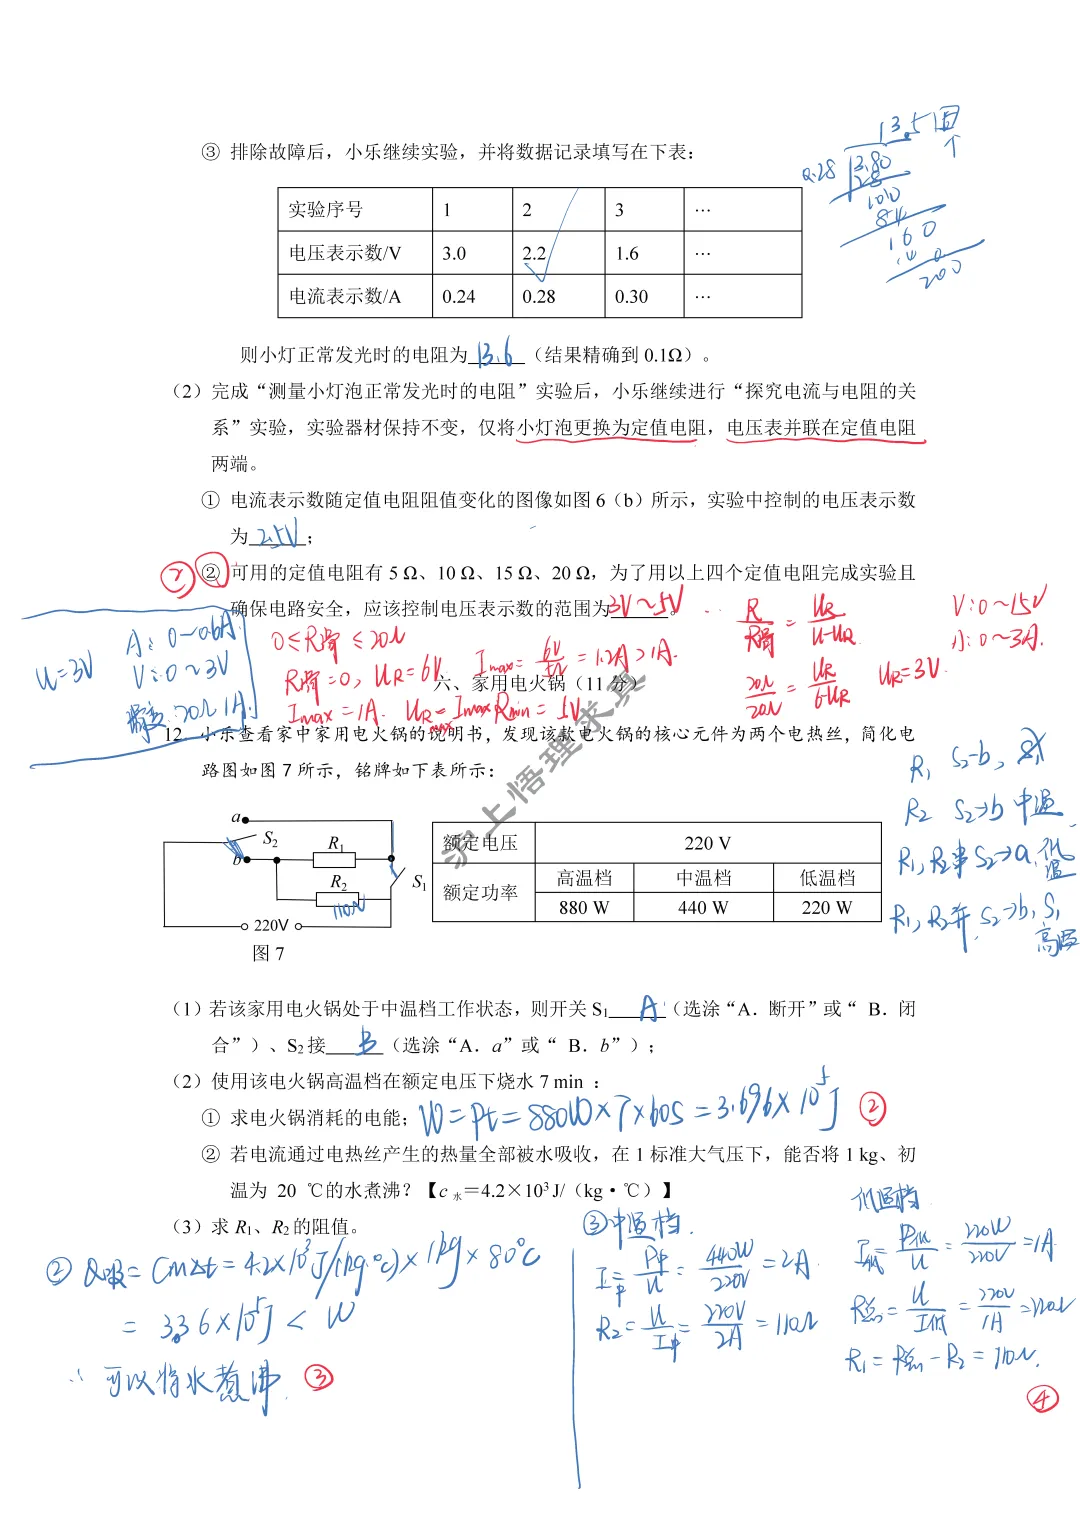 ③ 排除故障后，小乐继续实验，并将数据记录填写在下表：
实验序号 1 2 3 …
电压表示数/V 3.0 2.2 1.6 …
电流表示数/A 0.24 0.28 0.30 …
13.5
0.28 3.80
28
100
84
160
140
200
则小灯正常发光时的电阻为 13.6 （结果精确到 0.1Ω）。
（2）完成“测量小灯泡正常发光时的电阻”实验后，小乐继续进行“探究电流与电阻的关
系”实验，实验器材保持不变，仅将小灯泡更换为定值电阻，电压表并联在定值电阻
两端。
① 电流表示数随定值电阻阻值变化的图像如图 6（b）所示，实验中控制的电压表示数
为 2.5V ；
② ② 可用的定值电阻有 5 Ω、10 Ω、15 Ω、20 Ω，为了用以上四个定值电阻完成实验且
确保电路安全，应该控制电压表示数的范围为 3V～5V 。
U=3V
A: 0～0.6A
V: 0～3V
20Ω 1A
0≤R滑≤20Ω
R滑=0, UR=6V Imax=6V/5Ω=1.2A>1A.
Imax=1A. URmax=ImaxRmin=5V
R/R滑=UR/U-UR
20Ω/20Ω=UR/6-UR UR=3V.
V: 0～15V
A: 0～3A.
六、家用电火锅（11 分）
12. 小乐查看家中家用电火锅的说明书，发现该款电火锅的核心元件为两个电热丝，简化电
路图如图 7 所示，铭牌如下表所示：
沪上悟理求真
a
S2
R1
b
R2
110Ω
S1
220V
图 7
额定电压 220 V
额定功率 高温档 中温档 低温档
880 W 440 W 220 W
R1 S2-b,
R2 S2→b 中温
R1, R2串 S2→a, 低温
R1, R2并, S2→b, S1 高温
（1）若该家用电火锅处于中温档工作状态，则开关 S1 A （选涂“A．断开”或“ B．闭
合”）、S2 接 B （选涂“A．a”或“ B．b”）；
（2）使用该电火锅高温档在额定电压下烧水 7 min ：
① 求电火锅消耗的电能； W=Pt=880W×7×60s=3.696×10⁵J ②
② 若电流通过电热丝产生的热量全部被水吸收，在 1 标准大气压下，能否将 1 kg、初
温为 20 ℃的水煮沸？【c 水＝4.2×10³ J/（kg·℃）】
（3）求 R1、R2 的阻值。
② Q吸=cmΔt=4.2×10³J/(kg·℃)×1kg×80℃
=3.36×10⁵J<W
∴可以将水煮沸. ③
③中温档.
I中=P中/U=440W/220V=2A.
R2=U/I中=220V/2A=110Ω
低温档.
I低=P低/U=220W/220V=1A
R总=U/I低=220V/1A=220Ω
R1=R总-R2=110Ω.
④